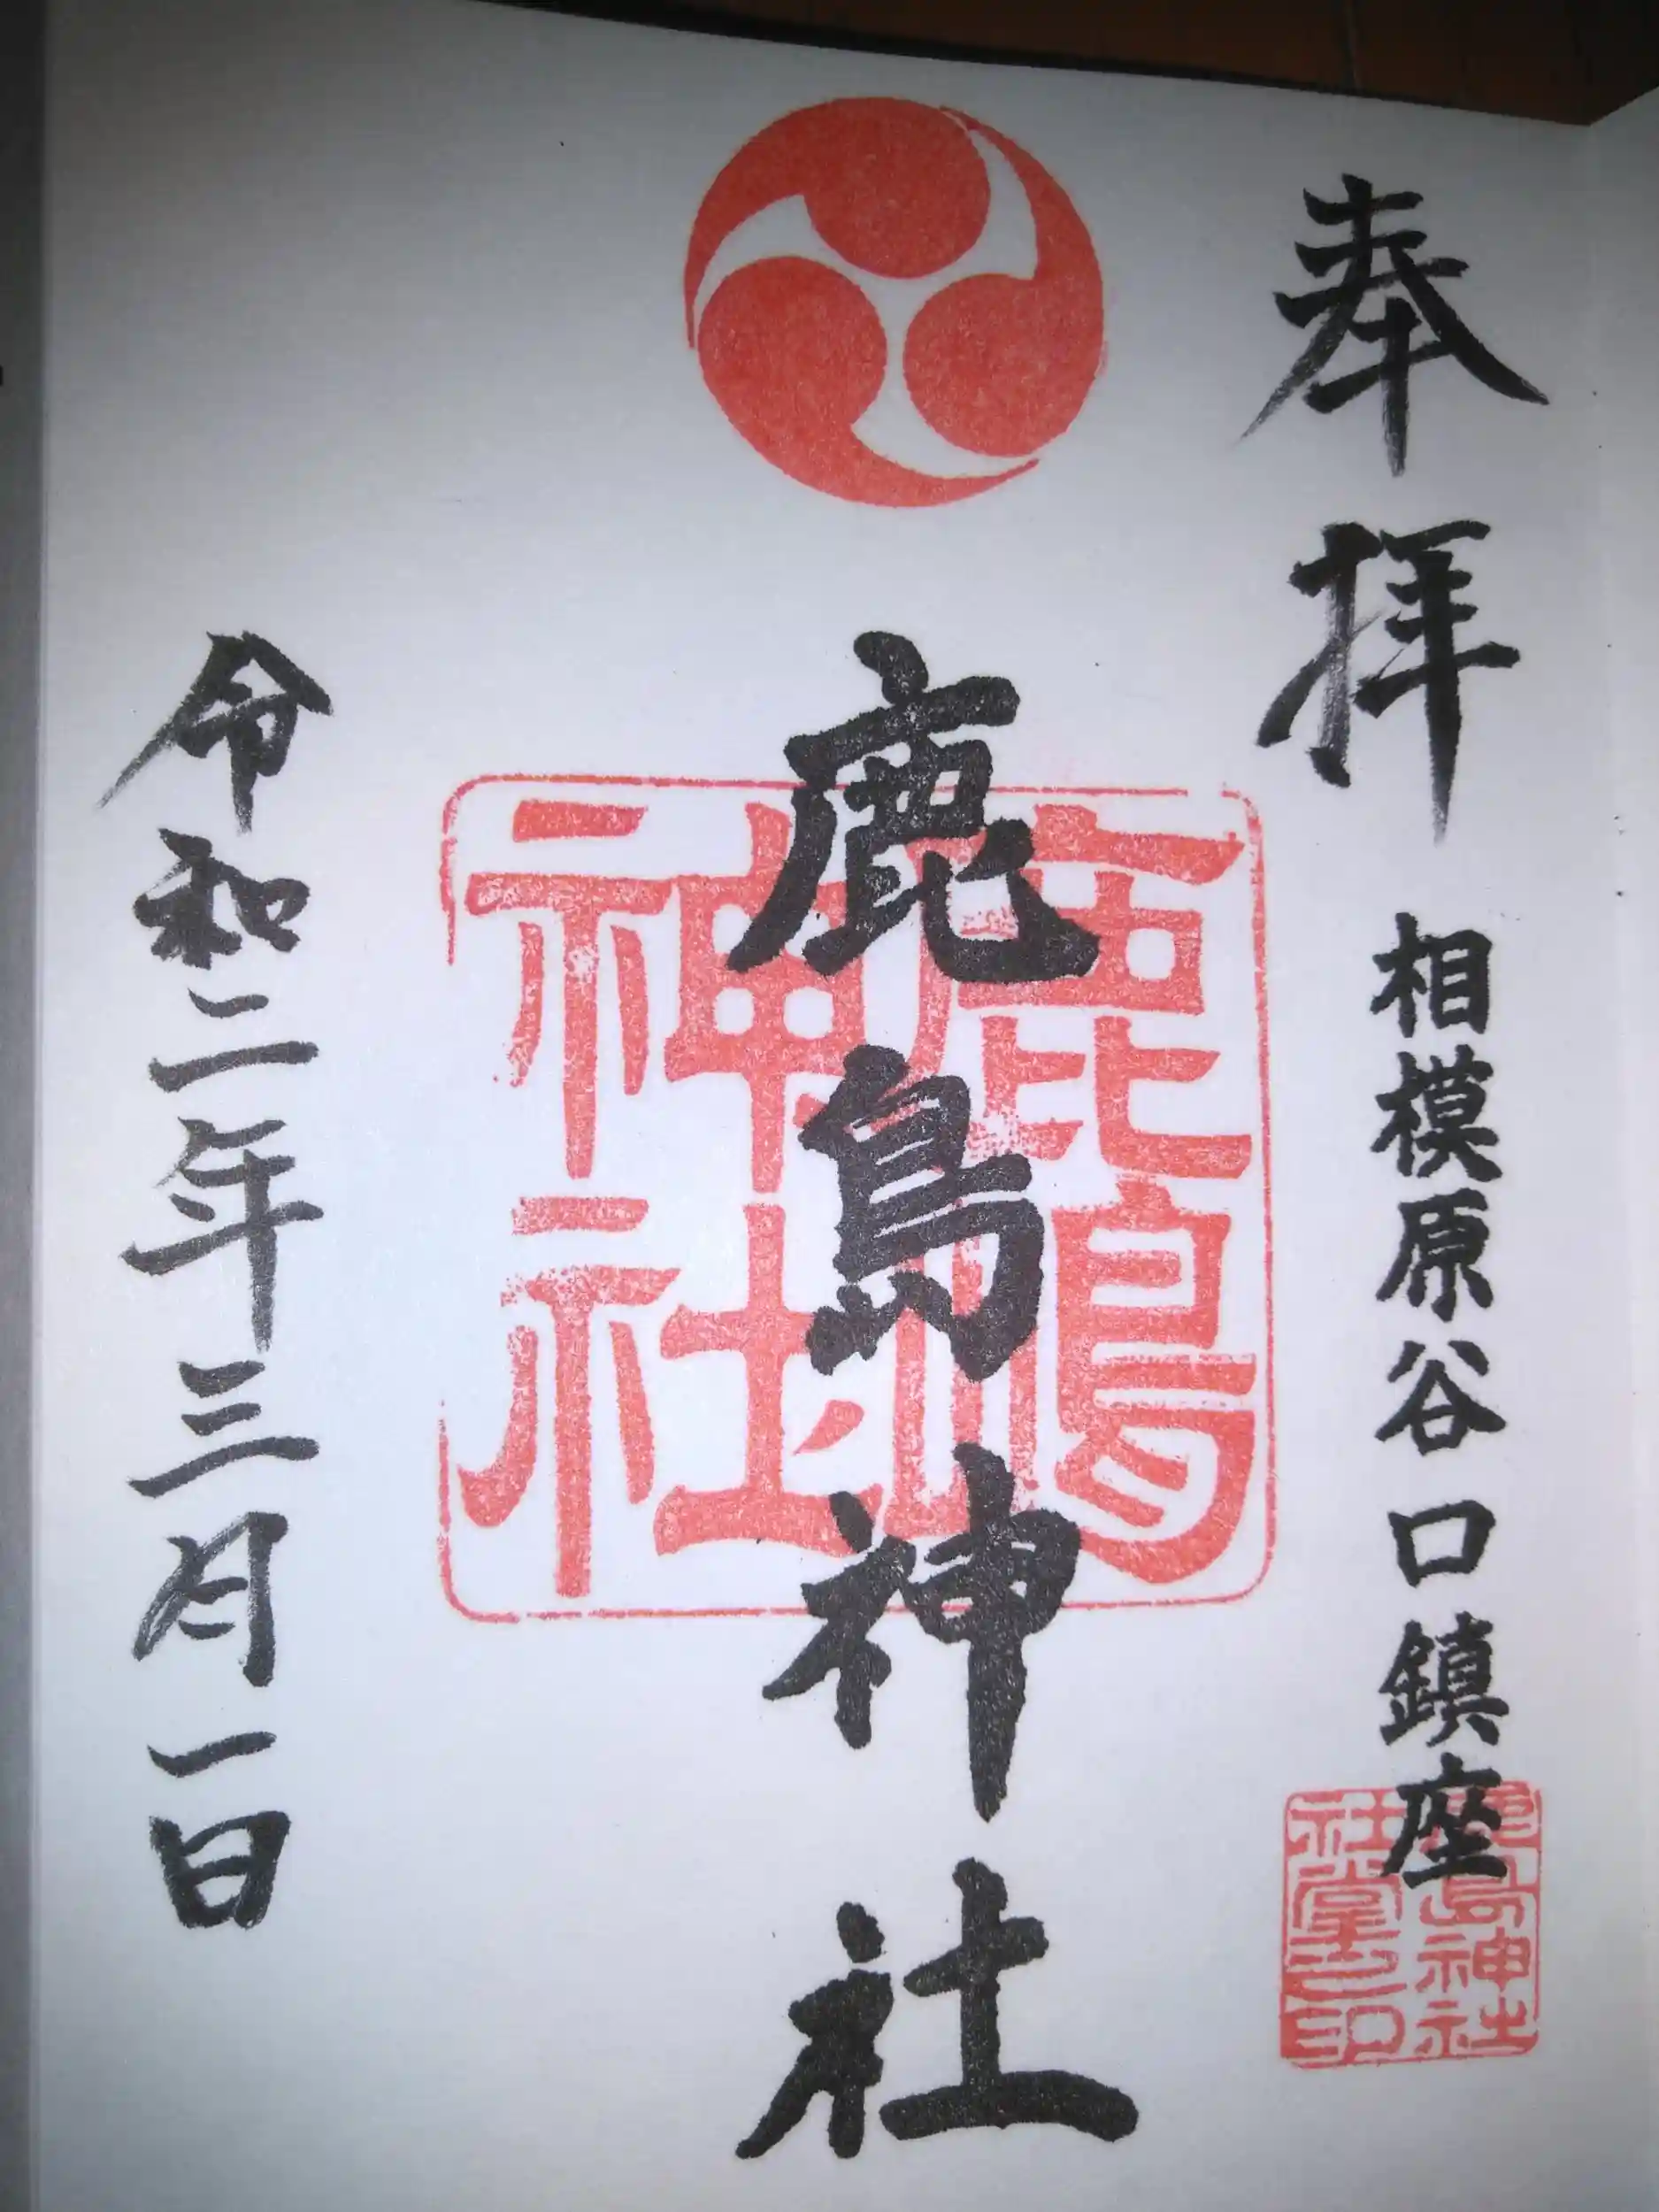 奉拝
相模原谷口鎮座
鹿島神社
社掌之印
鹿島神社
鹿嶋
神社
令和二年三月一日